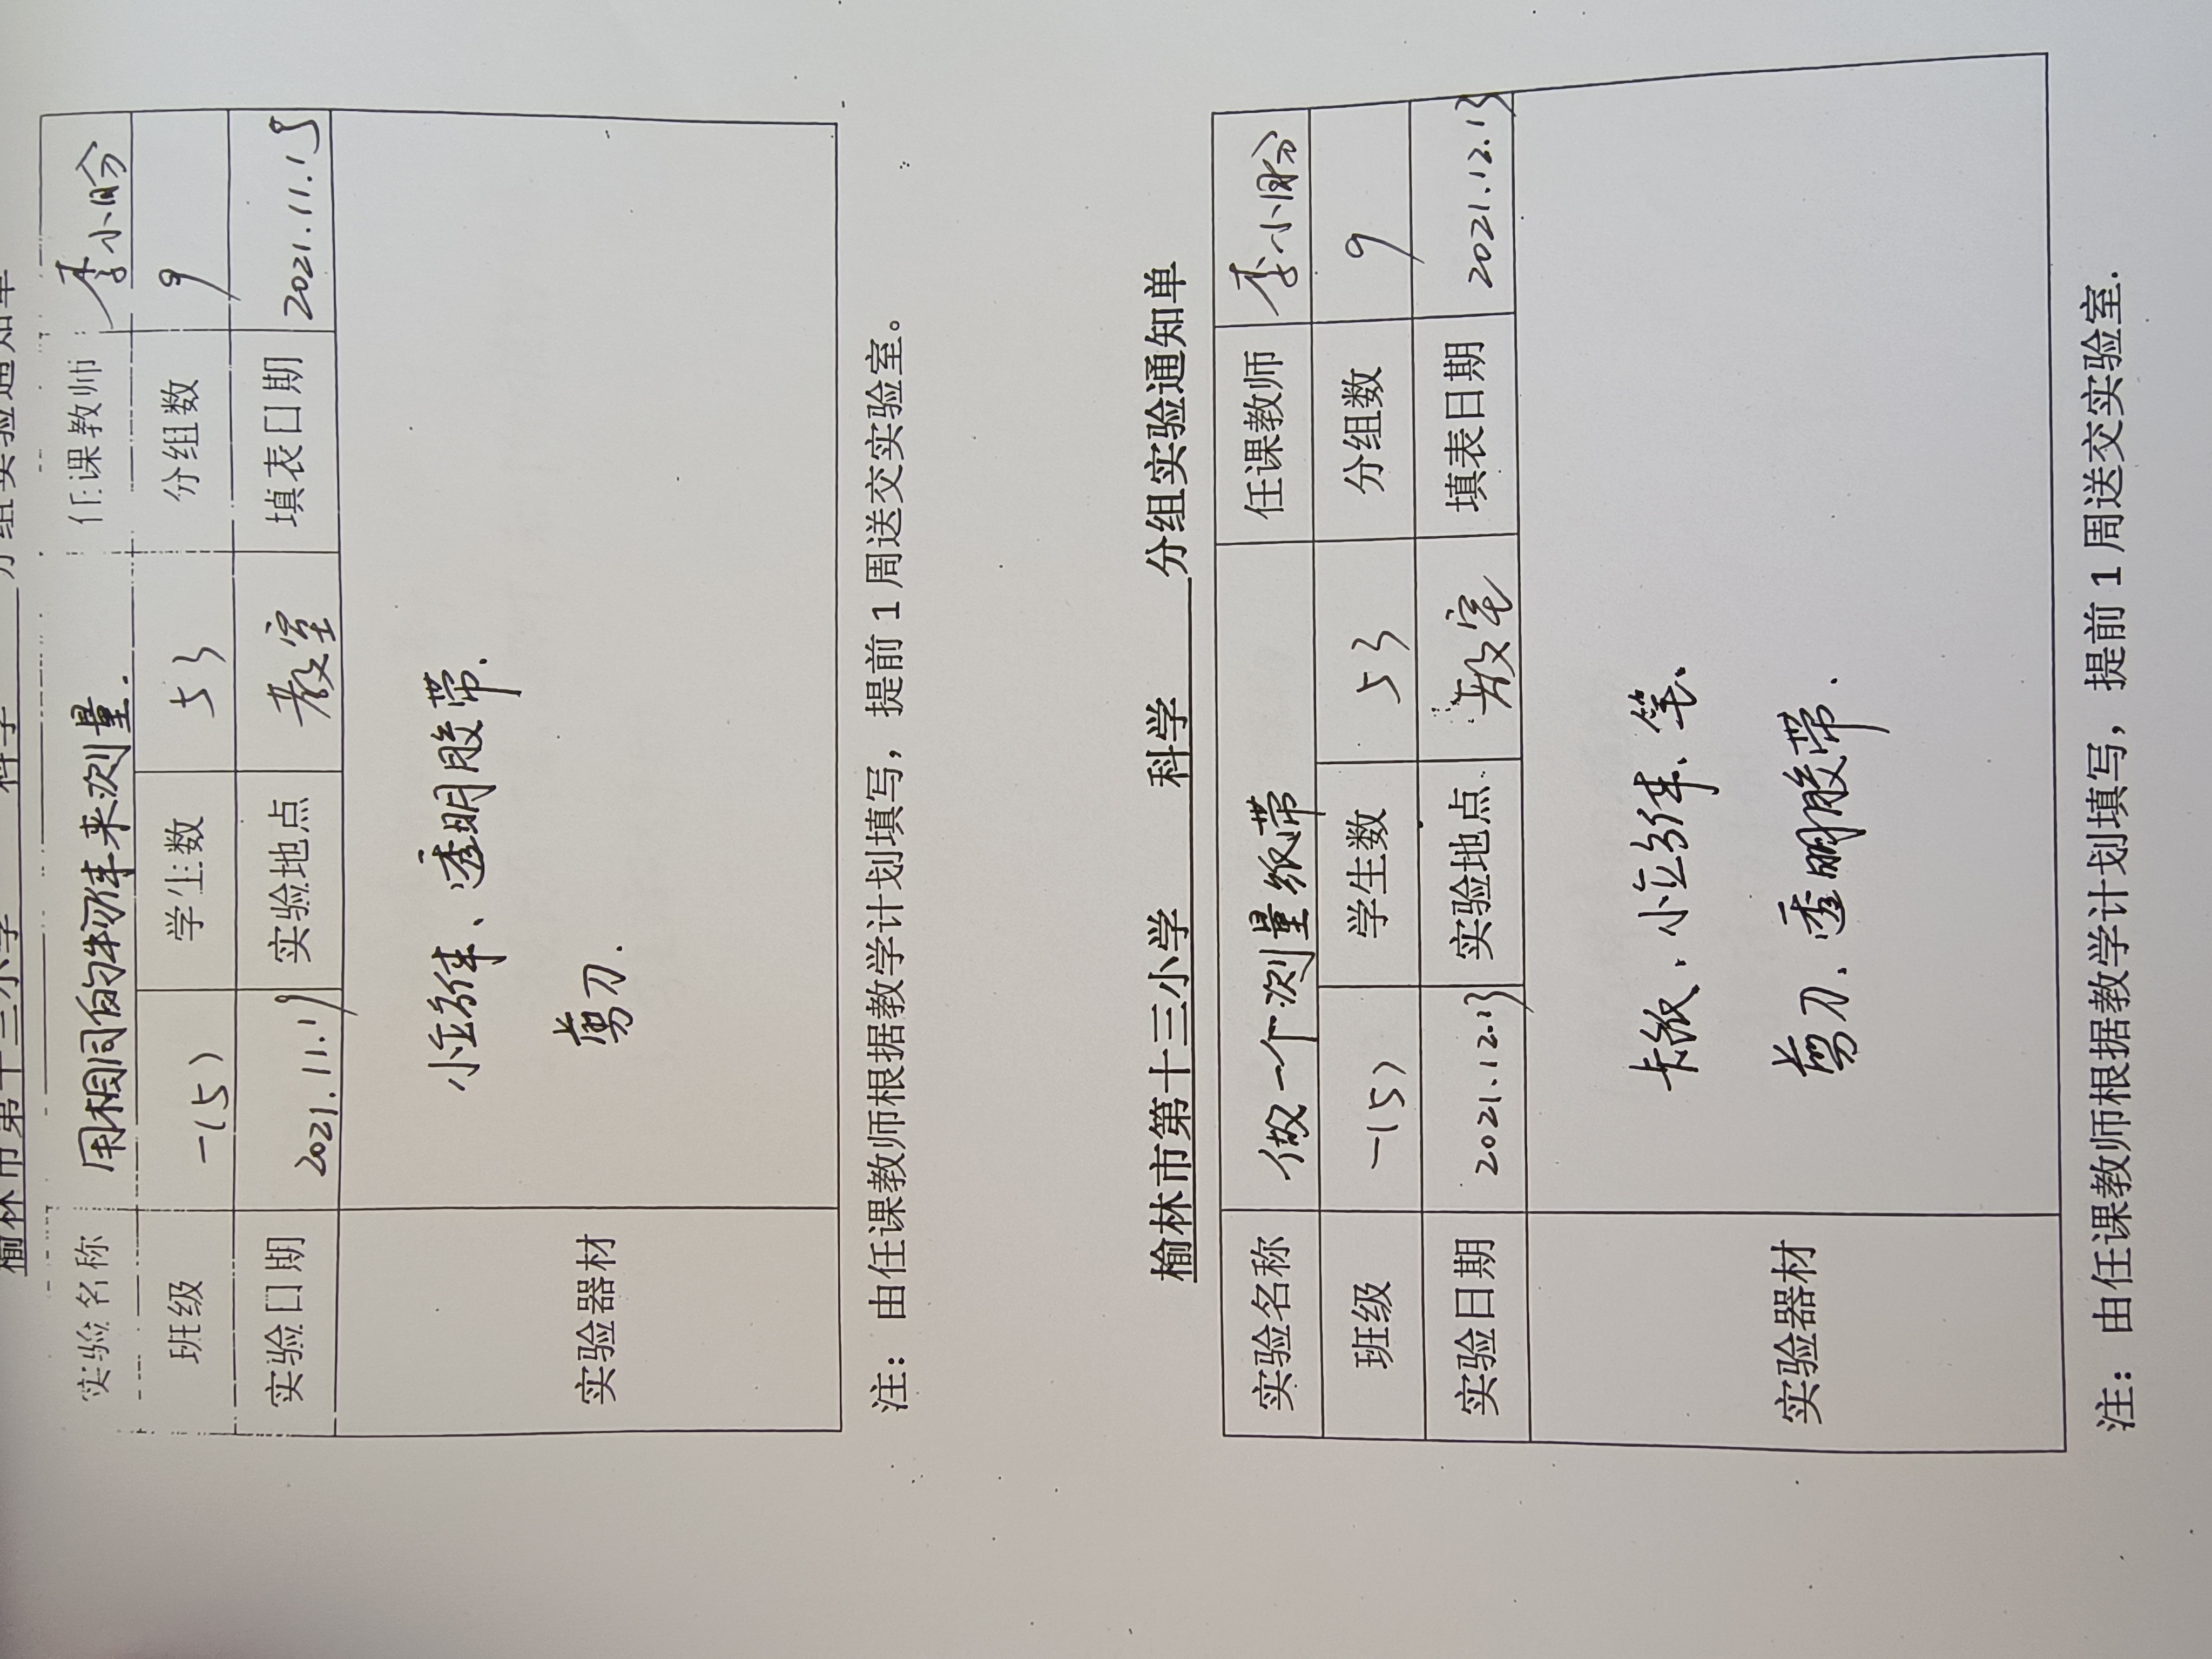 榆林市第十三小学 科学 分组实验通知单
实验名称 用相同的物体来测量. 任课教师 李小盼
班级 一(5) 学生数 53 分组数 9
实验日期 2021.11.19 实验地点 教室 填表日期 2021.11.15
实验器材 小立方体、透明胶带.
剪刀.
注：由任课教师根据教学计划填写，提前1周送交实验室。
榆林市第十三小学 科学 分组实验通知单
实验名称 做一个测量纸带 任课教师 李小盼
班级 一(5) 学生数 53 分组数 9
实验日期 2021.12.13 实验地点 教室 填表日期 2021.12.13
实验器材 卡纸、小立方体、笔、
剪刀、透明胶带.
注：由任课教师根据教学计划填写，提前1周送交实验室.